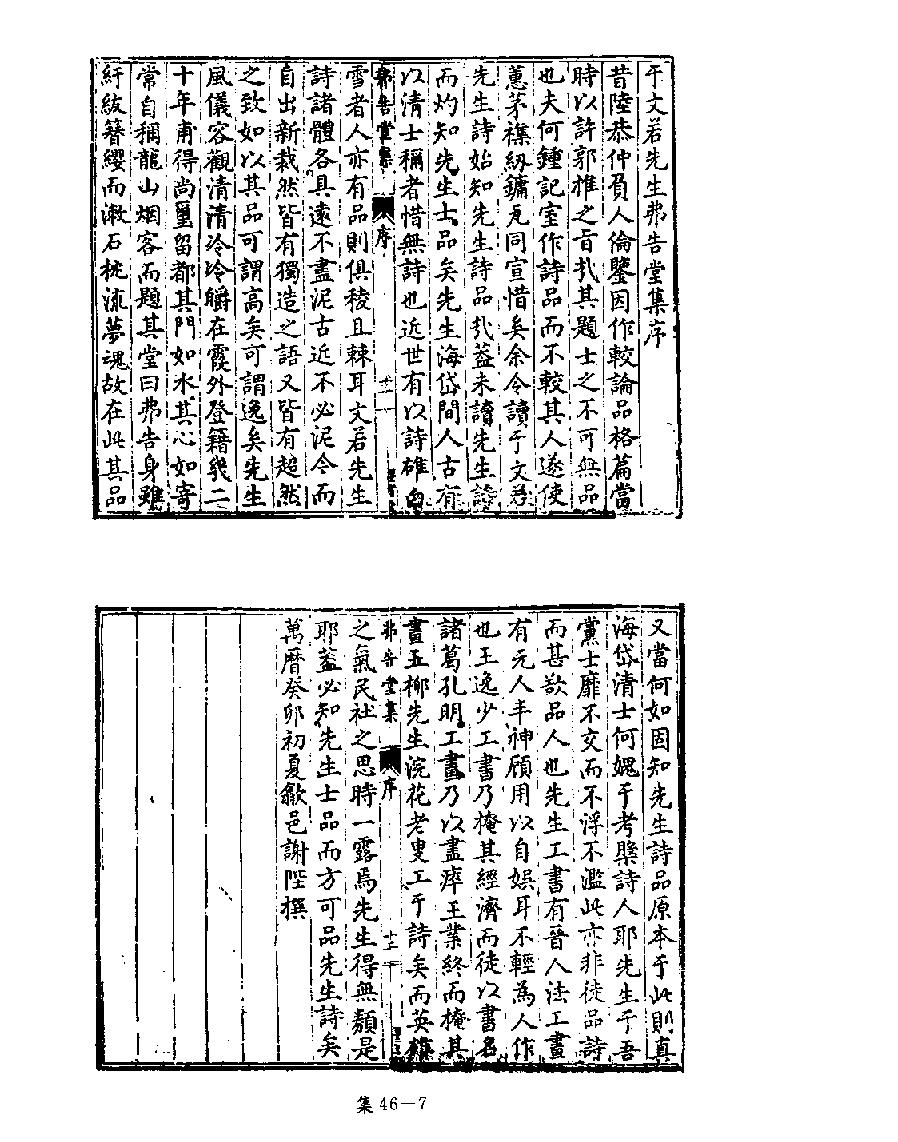 于文若先生弗告堂集序
昔陸恭仲負人倫鑒因作較論品格篇當
時以許郭推之旨哉其題士之不可無品
也夫何鍾記室作詩品而不較其人遂使
蕙茅襍紉鏞瓦同宣惜矣余今讀于文若
先生詩始知先生詩品哉蓋未讀先生詩
而灼知先生士品矣先生海岱間人古有
以清士稱者惜無詩也近世有以詩雄白
弗告堂集 序 十一
雪者人亦有品則俱稜且棘耳文若先生
詩諸體各具遠不盡泥古近不必泥今而
自出新裁然皆有獨造之語又皆有超然
之致如以其品可謂高矣可謂逸矣先生
風儀容觀清清泠泠皭在霞外登籍幾二
十年甫得尚璽留都其門如水其心如寄
常自稱龍山烟客而題其堂曰弗告身雖
紆紱簪纓而漱石枕流夢魂故在此其品
又當何如因知先生詩品原本于此則真
海岱清士何媿于考槃詩人耶先生于吾
黨士靡不交而不浮不濫此亦非徒品詩
而甚欲品人也先生工書有晉人法工畫
有元人丰神顧用以自娛耳不輕為人作
也王逸少工書乃掩其經濟而徒以書名
諸葛孔明工畫乃以盡瘁王業終而掩其
畫五柳先生浣花老叟工于詩矣而英雄
弗告堂集 序 十二
之氣民社之思時一露焉先生得無類是
耶蓋必知先生士品而方可品先生詩矣
萬曆癸卯初夏歙邑謝陛撰
集46－7